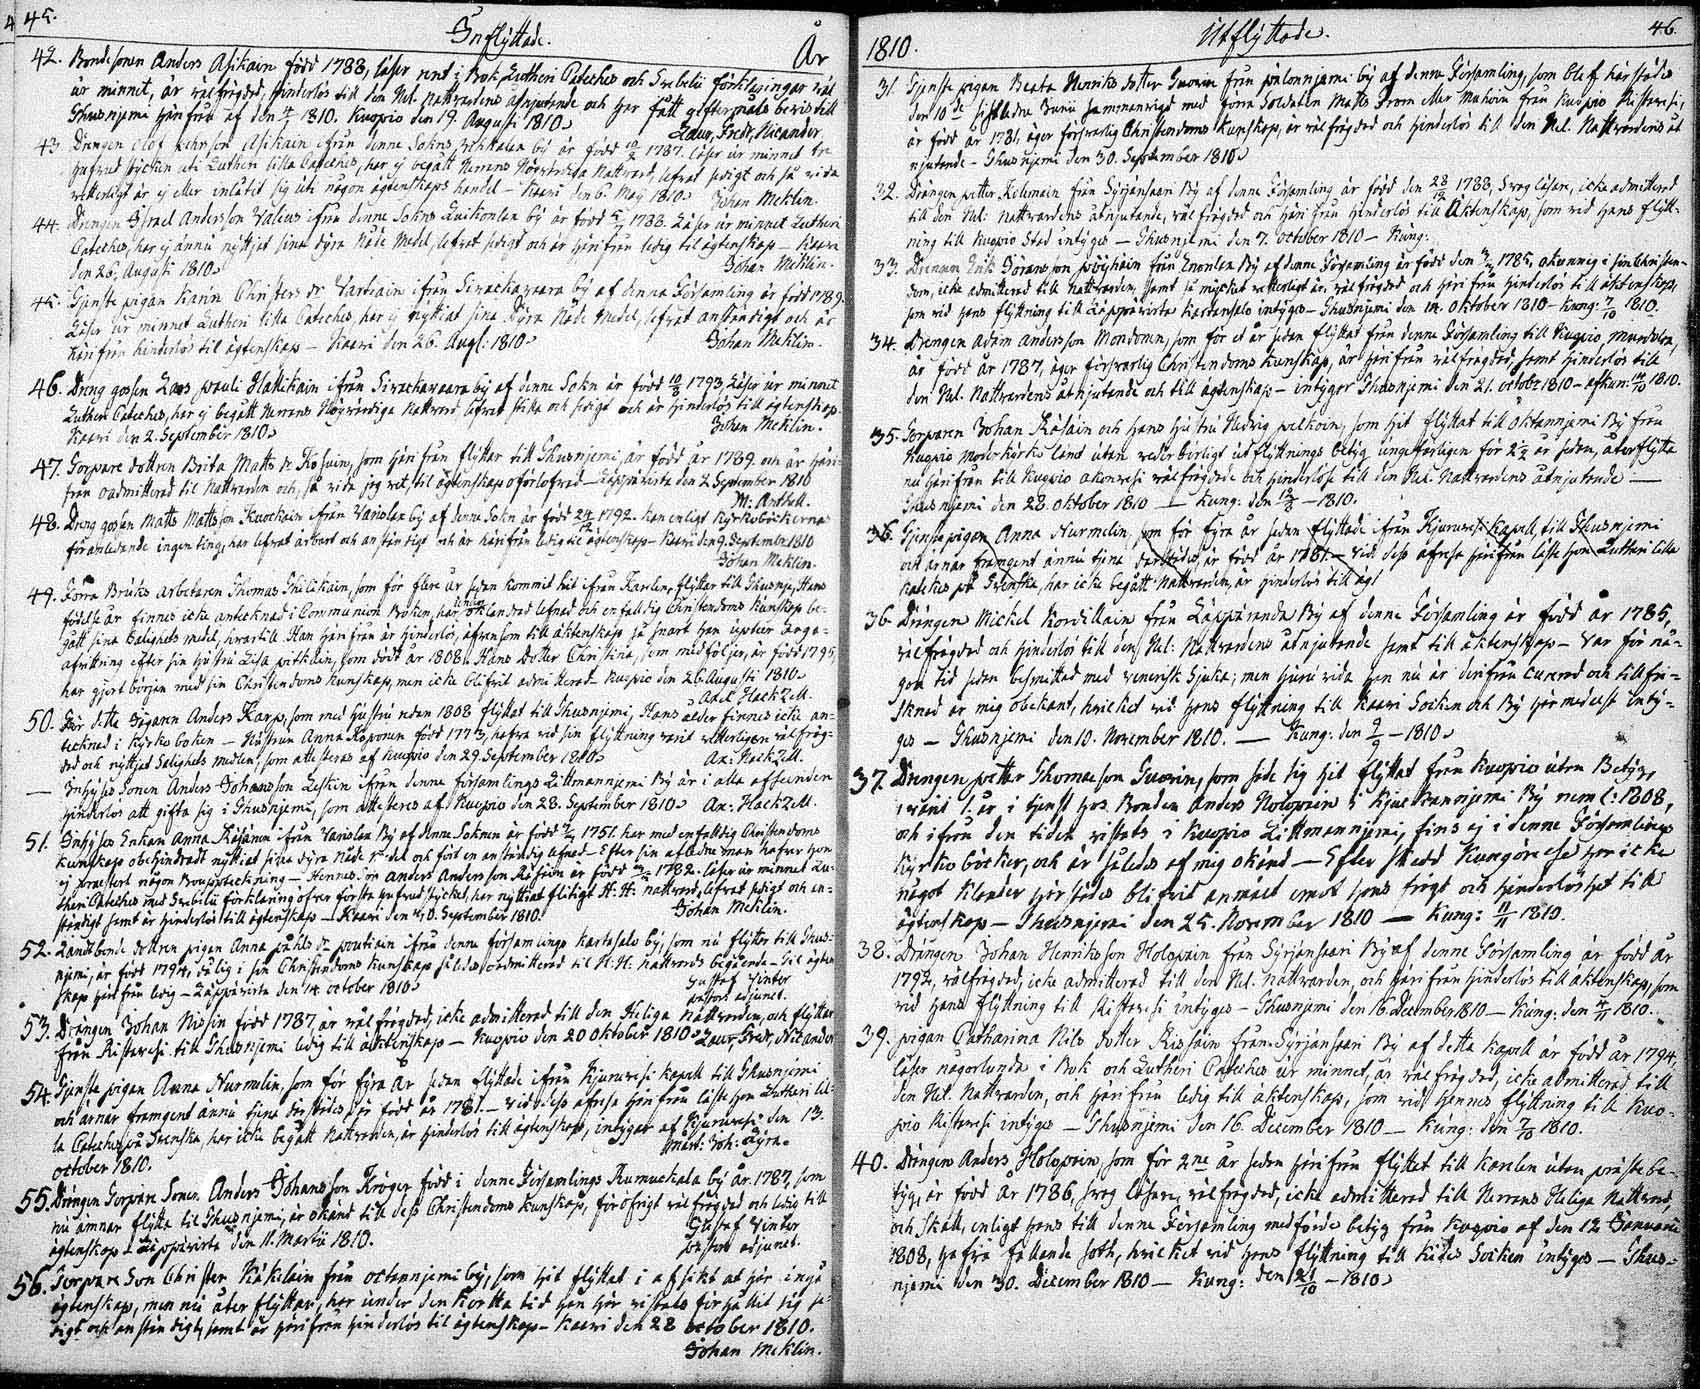 45.
Inflyttade.
År
42. Bondesonen Anders Asikain född 1788, läser rent i Bok, Lutheri Cateches och Svebelii förklaringar väl
ur minnet, är välfrägdad, hinderlös till den Hel. Nattvardens åtnjutande och har fått giftermåls bevis till
Thusnjemi härifrån af den 1810. Kuopio den 19. Augusti 1810.
Laur. Fredr. Nicander.
43. Drengen Olof Asikain ifrån denne Sokns by är född 1787. Läser ur minnet tre
hufvud stycken uti Lutheri lilla Cateches, har ej begått Herrans Högvärdiga Nattvard, lefvat sedigt och så vida
vetterligt är ej eller inlåtit sig uti någon ägtenskaps handel – Kaavi den 6. Maij 1810.
Johan Meklin.
44. Drengen Israel Andersson Valius ifrån denne Sokns by är född 1788. Läser ur minnet Lutheri
Cateches, har ej ännu nyttjat sina dyra Nåde Medel, lefvat sedigt och är härifrån ledig til ägtenskap – Kaavi
den 26. Augusti 1810.
Johan Meklin.
45. Tjenste pigan Karin Christers dr Vartiain ifrån Sivackavaara by af denna Församling är född 1789.
Läser ur minnet Lutheri lilla Cateches, har ej nyttiat sina Dyra Nåde Medel, lefvat anständigt och är
härifrån hinderlös til ägtenskap – Kaavi den 26. Aug: 1810.
Johan Meklin.
46. Dreng gossen Lars Pauli Hattikain ifrån Sivackavaara by af denne Sokn är född 1793, Läser ur minnet
Lutheri Cateches, har ej begått Herrans Högvärdiga Nattvard lefvat stilla och sedigt och är hinderlös till ägtenskap.
Kaavi den 2. September 1810.
Johan Meklin.
47. Torpare dottren Brita Matts dr Kosuin, som härifrån flyttar till Thusnjemi, är född år 1789. och är häri-
från oadmitterad til Nattvarden och, så vida jag vet, til ägtenskap oförlofvad – Läppävirta den 2 September 1810
M: Anthell.
48. Dreng gossen Matts Mattsson Kuockain ifrån Varislax by af denne Sokn är född 1792. han enligt Kyrkoböckernas
föranledande ingenting, har lefvat ärbart och anständigt och är härifrån ledig til ägtenskap – Kaavi den 9. September 1810
Johan Meklin.
49. Förra Bruks arbetaren Thomas Thilikain, som för flere år sedan kommit hit ifrån Karelen, flyttar till Thusnje, Hans
födelse år finnes icke antecknad i Communion Boken, har oklandrad lefnad och enfaldig Christendoms kunskap be-
gått sina Salighets medel, hvartill Han härifrån är hinderlös, äfvensom till äktenskap så snart han
afvittring efter sin hustru Lisa Pitkain, som dödt år 1808. Hans Dotter Christina, som medföljer, är född 1795,
har gjort början med sin Christendoms kunskap, men icke blifvit admitterad – Kuopio den 26 Augusti 1810.
Axel Hackzell.
50. För detta Jägaren Anders Karp, som med Hustru redan 1808 flyttat till Thusnjemi, Hans ålder finnes icke an-
tecknad i Kyrko boken – Hustrun Anna Koponen född 1773, hafva vid sin flyttning varit vetterligen välfräg-
dad och nyttjat Salighets medlen, som attesteras af Kuopio den 29 September 1810.
Ax: Hackzell.
— Inhyses Sonen Anders Johansson Leskin ifrån denne församlings Litmannjemi By är i alla afseenden
hinderlös att gifta sig i Thusnjemi, som attesteras af Kuopio den 28. September 1810. Ax: Hackzell.
51. Inhyses Enkan Anna Räsänen ifrån Varislax By af denne Soknen är född 1751. har med enfaldig Christendoms
kunskap obehindradt nyttiat sina dyra Nåde medel och fört en anständig lefnad – Efter sin aflidne man hafver hon
ej præstert någon Bouppteckning – Hennes son Anders Andersson Räsäin är född 1782. läser ur minnet Lu-
theri Cateches med Svebelii förklaring öfver första hufvud stycket, har nyttiat flitigt H: H: nattvard, lefvat sedigt och an-
ständigt samt är hinderlös till ägtenskap – Kaavi den 30. September 1810.
Johan Meklin.
52. Landtbonde dottren pigan Anna Påhls dr Poutiain ifrån denne församlings Kartasalo by, som nu flyttar till Thus-
njemi, är född 1794, dålig i sin Christendoms kunskap således oadmitterad til H: H: nattvards begående – til ägten
skap härifrån ledig – Läppävirta den 14. october 1810.
Gustaf Winter
Pastors adjunct.
53. Drengen Johan Nissin född 1787 är välfrägdad, icke admitterad till den Heliga Nattvarden, och flyttar
från Ristavesi till Thusnjemi ledig till äktenskap – Kuopio den 20 oktober 1810. Laur. Fredr. Nicander
54. Tjenste pigan Anna Nurmelin, som för fyra år sedan flyttade ifrån Kjuruvesi kapell till Thusnjemi
och ärnar framgent ännu tjena derstädes, är född år 1781. – Vid dess afresa härifrån läste hon Lutheri lil-
la Cateches på Svenska, har icke begått Nattvarden, är hinderlös till ägtenskap, intygar af Kjuruvesi den 13.
october 1810.
Mart: Joh: Lyra.
55. Drengen Torpare Sonen Anders Johansson Kröger född i denne Församlings Rumuckala by år 1787, som
nu ämnar flytta til Thusnjemi, är okänd till dess Christendoms kunskap, för öfrigt välfrägdad och ledig till
ägtenskap – Läppävirta den 11. Martii 1810.
Gustaf Winter
Pastors adjunct.
56. Torpare Son Christer Käkeläin från octannjemi by, som hit flyttat i afsikt at här ingå
ägtenskap, men nu åter flyttar, har under den kortta tid han här vistats förhållit sig se-
digt och anständigt, samt är härifrån hinderlös til ägtenskap – Kaavi den 28 october 1810.
Johan Meklin.
1810.
Utflyttade.
46.
31. Tjenste pigan Beata Henriks dotter från Pälonnjemi by af denne Församling, som blef härstädes
den 10de sistledne Junii sammanvigd med förra Soldaten Matts From eller Muhoin från Kuopio Ristavesi,
är född år 1781, äger försvarlig Christendoms kunskap, är välfrägdad och hinderlös till den Hel. Nattvardens åt
njutande – Thusnjemi den 30. September 1810.
32. Drängen Petter Kelemain från Syrjänsaari By af denne Församling är född den 28/12 1788, Svag läsare, icke admitterad
till den Hel: Nattvardens åtnjutande, välfrägdad och härifrån hinderlös till Äktenskap, som vid hans flytt-
ning till Kuopio Stad intygas – Thusnjemi den 7. October 1810 – Kung:
33. Drengen Erik Göransson Pöyhöin från Enonlax By af denne Församling är född den 1785, okunnig i sin Christen-
dom, icke admitterad till Nattvarden, samt så mycket vetterligt är, välfrägdad och härifrån hinderlös til äktenskap,
som vid hans flyttning till Läppävirta Kartansalo intygas – Thusnjemi den 14. Oktober 1810 – Kung: 7/10 1810.
34. Drengen Adam Andersson Mondonen, som för et år sedan flyttat från denne Församling till Kuopio,
är född år 1787, äger försvarlig Christendoms kunskap, är härifrån välfrägdad, samt hinderlös till
den Hel. Nattvardens åtnjutande och till ägtenskap – intygar Thusnjemi den 21. octobr 1810 – afkun: 14/10 1810.
35. Torparen Johan Räsäin och hans hustru Hedvig Pelkoin, som hit flyttat till Oktannjemi By från
Kuopio moderkyrko land utan vederbörligt utflyttnings betyg ungefärligen för 2 1/2 år sedan, återflytta
nu härifrån till Kuopio välfrägdade och hinderlöse till den Hel. Nattvardens åtnjutande —
Thusnjemi den 28 oktober 1810 — Kung: den – 1810.
36. Tjenstepigan Anna Nurmelin, som för fyra år sedan flyttade ifrån Kjuruvesi Kapell till Thusnjemi
och ärnar framgent ännu tjena derstädes, är född år 1781. – Vid dess afresa härifrån läste hon Lutheri lilla
katekes på Svenska, har icke begått Nattvarden, är hinderlös till ägt
36. Drängen Mickel Korvillain från Läppäranda By af denne Församling är född år 1785,
välfrägdad och hinderlös till den Hel: Nattvardens åtnjutande samt till äktenskap – Var för nå-
gon tid sedan besmittad med venerisk sjuka; men huru vida han nu är derifrån curerad och tillfri-
sknad är mig obekant, hvilket vid hans flyttning till Kaavi Socken och By här medelst inty-
gas – Thusnjemi den 10. November 1810. — Kung: den – 1810.
37. Drengen Petter Thomasson som sade sig hit flyttat från Kuopio utan Betyg,
varit 1. år i tjenst hos Bonden Anders Holopain i By neml: 1808,
och ifrån den tiden vistats i Kuopio Littmannjemi, fins ej i denne Församlings
Kyrko böcker, och är således af mig okänd – Efter skedd Kungörelse har icke
något klander här städes blifvit anmält emot hans frägd och hinderlöshet till
ägtenskap – Thusnjemi den 25. November 1810 — Kung: 11/11 1810.
38. Drängen Johan Henriksson Holopain från Syrjänsaari By af denne Församling är född år
1792, välfrägdad, icke admitterad till den Hel. Nattvarden, och härifrån hinderlös till äktenskap, som
vid hans flyttning till Ristavesi intygas – Thusnjemi den 16. December 1810 – Kung: den 1810.
39. Pigan Catharina Nils dotter Rissain från Syrjänsaari By af detta kapell är född år 1794,
läser någorlunda i Bok och Lutheri Cateches ur minnet, är välfrägdad, icke admitterad till
den Hel. Nattvarden, och härifrån ledig till äktenskap, som vid hennes flyttning till Kuo-
pio Ristavesi intygas – Thusnjemi den 16. December 1810 – Kung: den 1810.
40. Drängen Anders Holopain, som för 2ne år sedan härifrån flyttat till Karelen utan prästebe-
tyg, är född år 1786, svag läsare, välfrägdad, icke admitterad till Herrans Heliga Nattvard,
och skall, enligt hans till denne Församling medförde betyg från Kuopio af den 12 Januarii
1808, hafva fallande soth, hvilket vid hans flyttning till Kides Socken intygas – Thus-
njemi den 30. December 1810 – Kung: den – 1810.